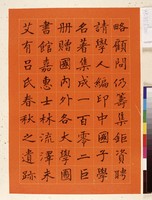 略顧問仍籌集鉅資聘
請學人編印中國子學
名著集成一百零二巨
册贈國內外各大學圖
書館嘉惠士林流澤未
艾有呂氏春秋之遺跡